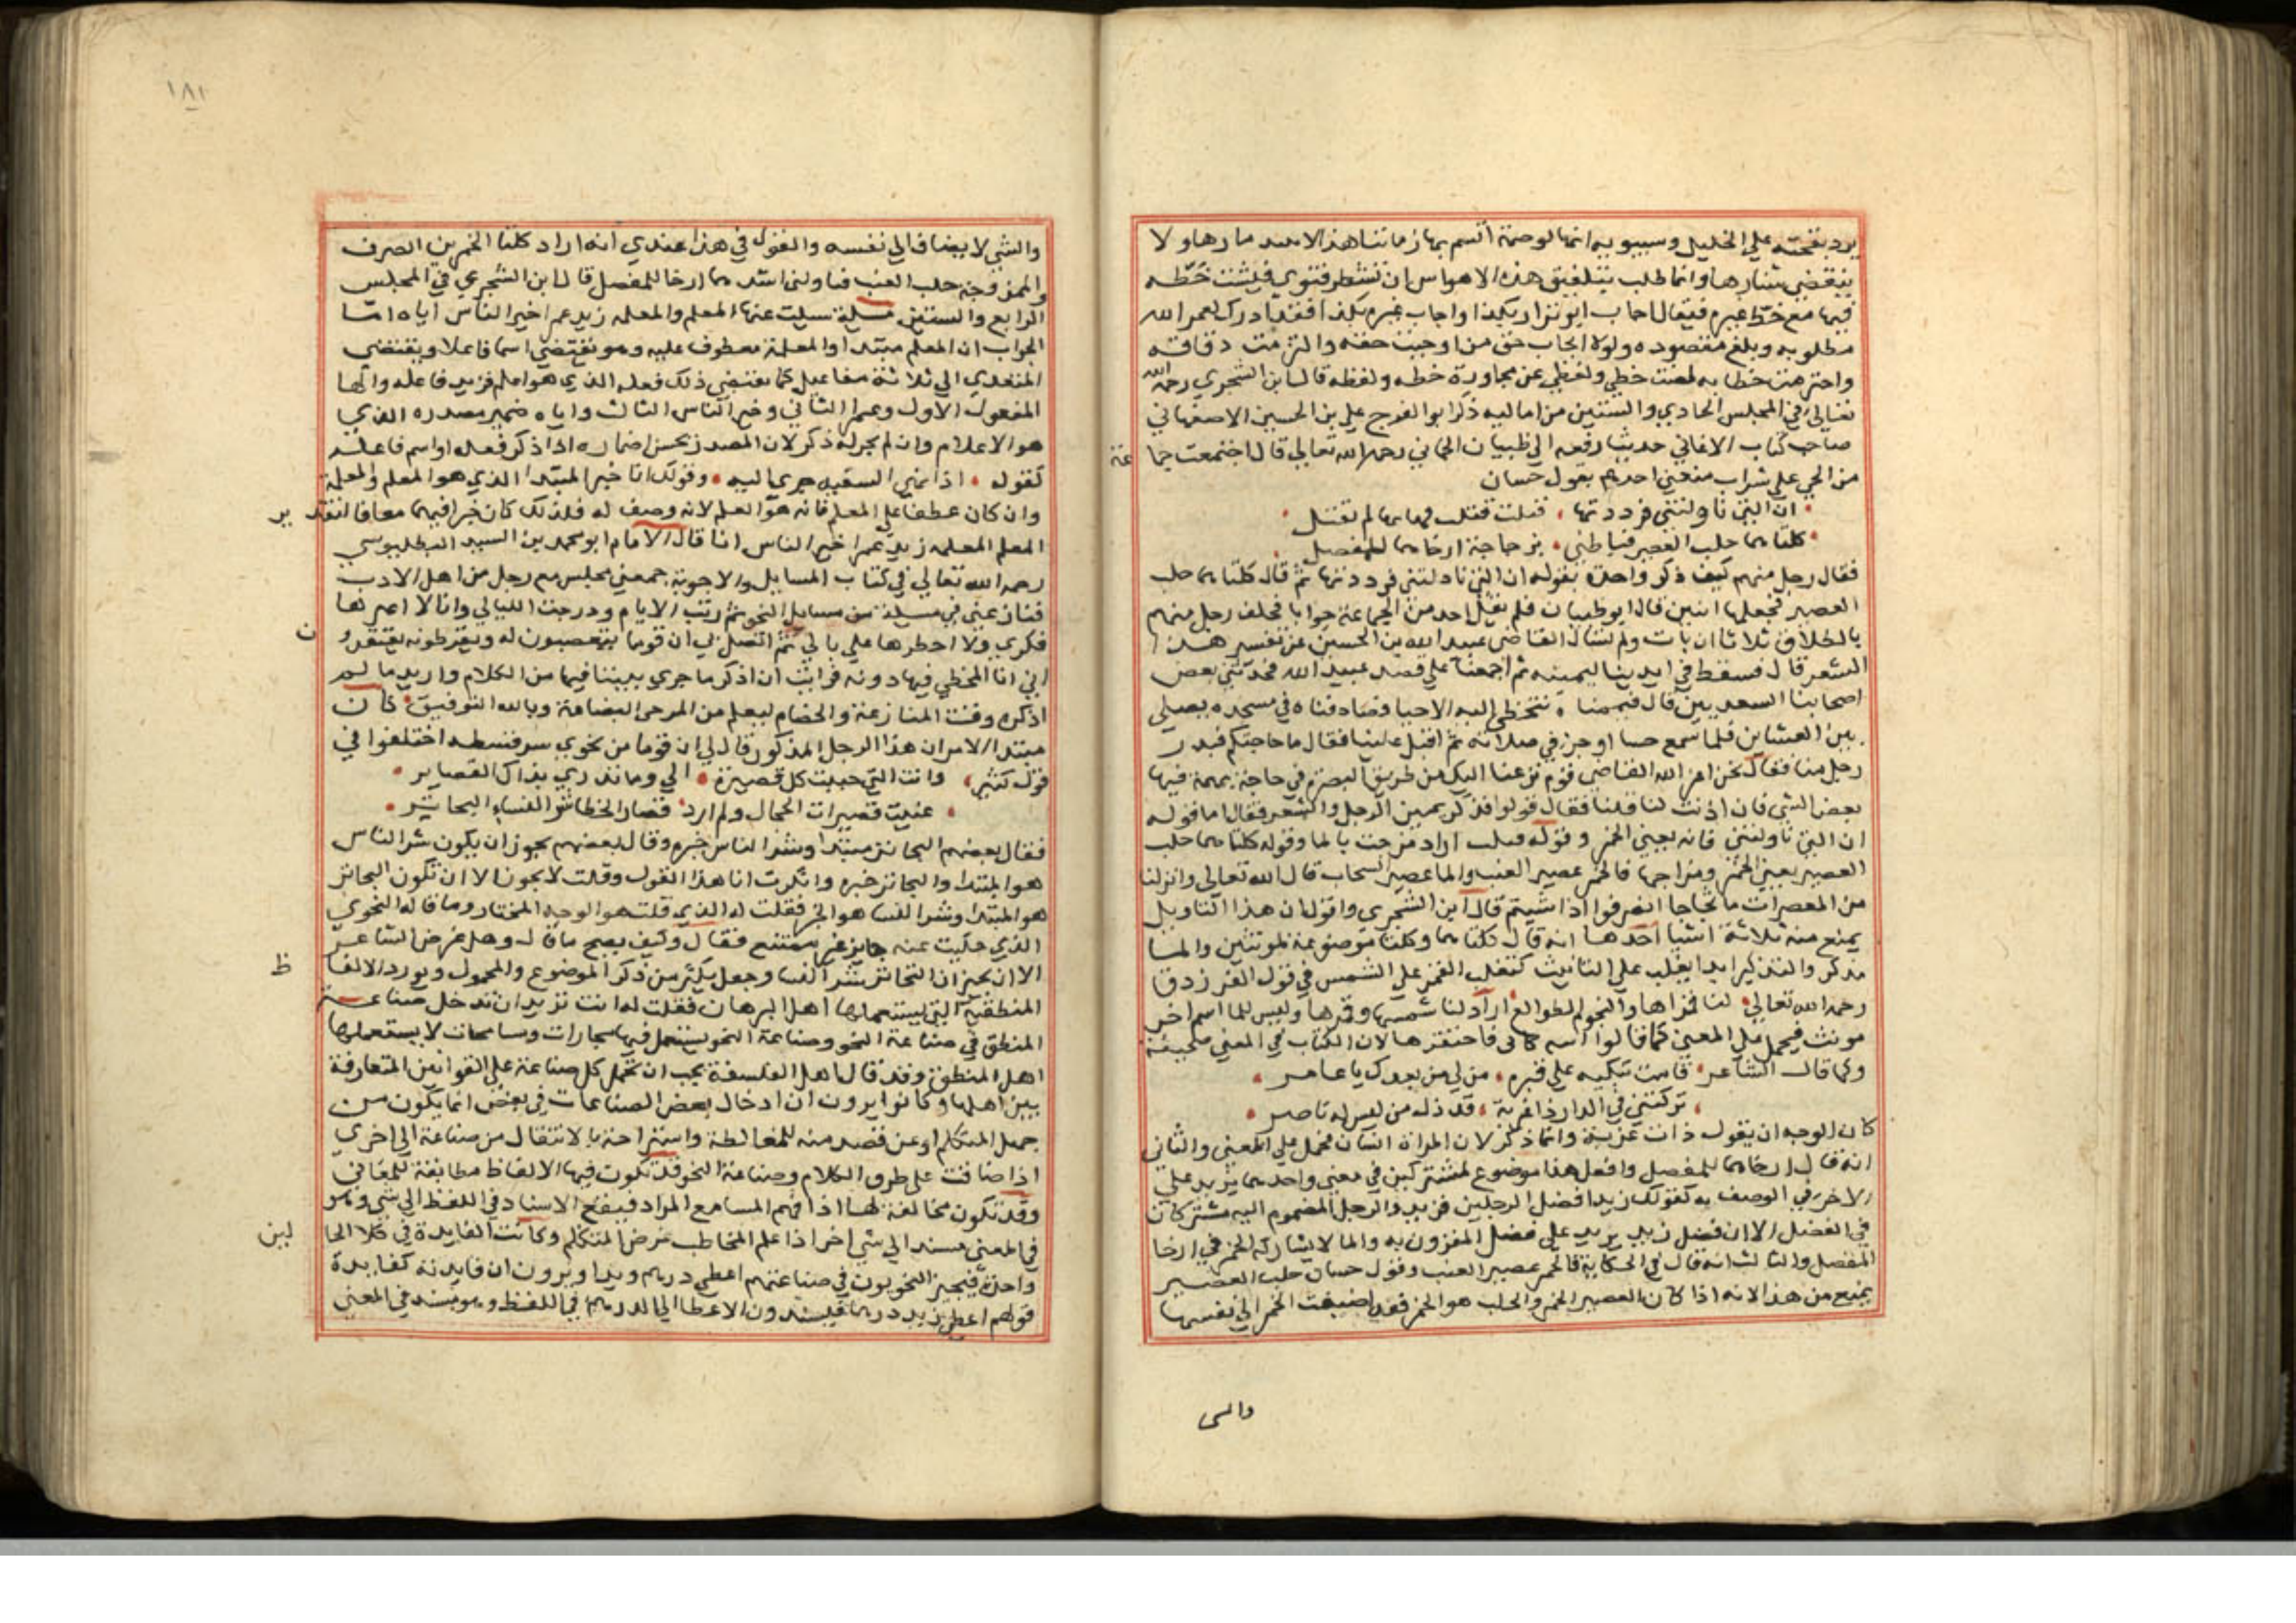 يرد بقحته علي الخليل وسيبويه انها لوصمة اتسم بها زماننا هذا لا يبيد عارها ولا
ينقضي شنارها وانما طلب بتلفيق هذه الاهواس ان تسطر فتوي فيثبت خطه
فيها مع خط غيره فيقال اجاب ابو نزار بكذا واجاب غيره بكذا فقد ادرك لعمر الله
مطلوبه وبلغ مقصوده ولولا ايجاب حق من اوجبت حقه والتزمت وفاقه
واحترمت خطابه لصنت خطي ولفظي عن مجاورة خطه ولفظه قال ابن الشجري رحمه الله
تعالي في المجلس الحادي والستين من اماليه ذكر ابو الفرج علي بن الحسين الاصفهاني
صاحب كتاب الاغاني حديثا رفعه الي ظبيان الحماني رحمه الله تعالي قال اجتمعت جما
عة
من الحي علي شراب فتغني احدهم بقول حسان
ان التي ناولتني فرددتها ، قتلت قتلت فهاتها لم تقتل
كلتاهما حلب العصير فعاطني ، بزجاجة ارخاهما للمفصل
فقال رجل منهم كيف ذكر واحدة بقوله ان التي ناولتني فرددتها ثم قال كلتاهما حلب
العصير فجعلها اثنين قال ابو ظبيان فلم يقل احد من الجماعة جوابا فحلف رجل منهم
بالطلاق ثلاثا ان بات ولم يسال القاضي عبيد الله بن الحسين عن تفسير هذا
الشعر قال فسقط في ايدينا ليمينه ثم اجمعنا علي قصد عبيد الله فحدثني بعض
اصحابنا السعديين قال فيممناه نتخطي اليه الاحيا فصادفناه في مسجده يصلي
بين العشاين فلما سمع حسنا اوجز في صلاته ثم اقبل علينا فقال ما حاجتكم فبدر
رجل منا فقال نحن اعز الله القاضي قوم نزعنا اليك من طريق البصرة في حاجة مهمة فيها
بعض الشي فان اذنت لنا قلنا فقال قولوا فذكر يمين الرجل والشعر فقال اما قوله
ان التي ناولتني فانه يعني الخمر وقوله قتلت اراد مزجت بالما وقوله كلتاهما حلب
العصير يعني الخمر ومزاجها فالخمر عصير العنب والما عصير السحاب قال الله تعالي وانزلنا
من المعصرات ما ثجاجا انصرفوا اذا شيتم قال ابن الشجري واقول ان هذا التاويل
يمنع منه ثلاثة اشيا احدها انه قال كلتاهما وكلتا موضوعة لمونثين والما
مذكر والتذكير ابدا يغلب علي التانيث كتغليب القمر علي الشمس في قول الفرزدق
رحمه الله تعالي لنا قمراها والنجوم الطوالع اراد لنا شمسها وقمرها وليس للما اسم اخر
مونث فيحمل علي المعني كما قالوا اتته كتابي فاحتقرها لان الكتاب في المعني صحيفة
وكما قال الشاعر قامت تبكيه علي قبره ، من لي من بعدك يا عامر
تركتني في الدار ذا غربة ، قد ذل من ليس له ناصر
كان الوجه ان يقول ذات غربة وانما ذكر لان المراة انسان فحمل علي المعني والثاني
انه قال ارخاهما للمفصل وافعل هذا موضوع لمشتركين في معني واحدهما يزيد علي
الاخر في الوصف به كقولك زيد افضل الرجلين فزيد والرجل المضموم اليه مشتركان
في الفضل الا ان فضل زيد يزيد علي فضل المقرون به والما لا يشارك الخمر في ارخا
المفصل والثالث انه قال في الحكاية فالخمر عصير العنب وقول حسان حلب العصير
يمنع من هذا لانه اذا كان العصير الخمر والحلب هو الخمر فقد اضيفت الخمر الي نفسها
والشي
١٨١
والشي لا يضاف الي نفسه والقول في هذا عندي انه اراد كلتا الخمرين الصرف
والممزوجة حلب العنب فناولني اشدهما ارخا للمفصل قال ابن الشجري في المجلس
الرابع والستين مسيلة سيلت عنها المعلم والمعلمه زيد عمرا خير الناس اياه انا
الجواب ان المعلم مبتدا والمعلمه معطوف عليه وهو يقتضي اسما فاعلا ويقتضي
المتعدي الي ثلاثة مفاعيل كما يقتضي ذلك فعله الذي هو اعلم فزيد فاعله والها
المفعول الاول وعمرا الثاني وخير الناس الثالث واياه ضمير مصدره الذي
هو الاعلام وان لم يجر له ذكر لان المصدر يحسن اضماره اذا ذكر فعله او اسم فاعله
كقوله ، اذا نهي السفيه جري اليه ، وقولك انا خبر المبتدا الذي هو المعلم والمعلمة
وان كان عطفا علي المعلم فانه هو المعلم لانه وصف له فلذلك كان خبرا فيهما معا فالتقد
ير
المعلم المعلمه زيد عمرا خير الناس انا قال الامام ابو محمد بن السيد البطليوسي
رحمه الله تعالي في كتاب المسايل والاجوبة جمعني مجلس مع رجل من اهل الادب
فنازعني في مسيلة من مسايل النحو ثم رتبت الايام ودرجت الليالي وانا لا اعيرها
فكري ولا اخطرها علي بالي ثم اتصل بي ان قوما يتعصبون له ويقرظونه يعتقدو
ن
اني انا المخطي فيها دونه فرايت ان اذكر ما جري بيننا فيها من الكلام واريد ما لم
اذكره وقت المنازعة والخصام ليعلم من المزجي البضاعة وبالله التوفيق كان
مبتدا الامر ان هذا الرجل المذكور قال لي ان قوما من نحوي سرقسطه اختلفوا في
قول كثير ، وانت التي حببت كل قصيرة ، الي وما تدري بذاك القصاير
عنيت قصيرات الحجال ولم ارد ، قصار الخطا شر النساء البحاتر
فقال بعضهم البحاتر مبتدا وشر النساء خبره وقال بعضهم يجوز ان يكون شر النساء
هو المبتدا والبحاتر خبره وانكرت انا هذا القول وقلت لا يجوز الا ان تكون البحاتر
هو المبتدا وشر النسا هو الخبر فقلت له الذي قلت هو الوجه المختار وما قاله النحوي
الذي حكيت عنه جايز غير ممتنع فقال وكيف يصح ما قال وهل غرض الشاعر
الا ان يخبر ان البحاتر شر النسا وجعل يكثر من ذكر الموضوع والمحمول ويورد الالفا
ظ
المنطقية التي يستعملها اهل البرهان فقلت له انت تريد ان تدخل صناعة
المنطق في صناعة النحو وصناعة النحو يستعمل فيها مجازات ومسامحات لا يستعملها
اهل المنطق وقد قال اهل الفلسفة يجب ان تحمل كل صناعة علي القوانين المتعارفة
بين اهلها وكانوا يرون ان ادخال بعض الصناعات في بعض انما يكون من
جهل المتكلم او عن قصد منه للمغالطة واستراحة بالانتقال من صناعة الي اخري
اذا ضاقت علي طرق الكلام وصناعة النحو قد تكون فيها الالفاظ مطابقة للمعاني
وقد تكون مخالفة لها اذا فهم السامع المراد فيقع الاسناد في اللفظ الي شي وهو
في المعني مسند الي شي اخر اذا علم المخاطب غرض المتكلم وكانت الفايدة في كلا الحا
لين
واحدة فيجيز النحويون في صناعتهم اعطي درهم زيدا ويرون ان فايدته كفايدة
قولهم اعطي زيد درهما فيسندون الاعطا الي الدرهم في اللفظ وهو مسند في المعني